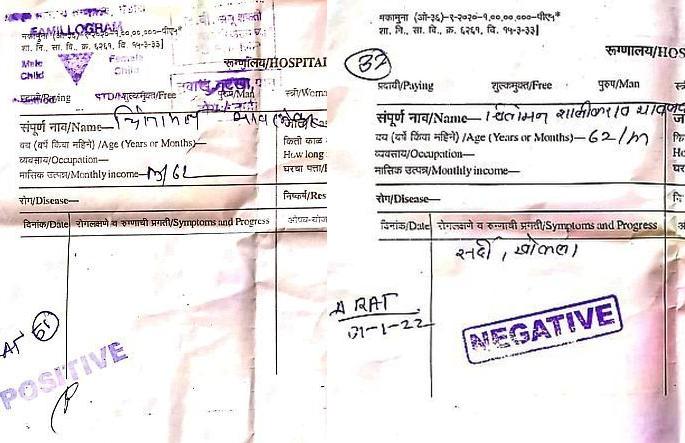 FAMILLOGRAM
मकामुना (ओ-३६)-१-२०२०-१,००,००,०००-पीए५*
शा. नि., सा. वि., क्र. ६२६१, दि. १५-३-३३]
Male
Child
Female
Child
रूग्णालय/HOSPITA
प्रदायी/Paying
शुल्कमुक्त/Free
पुरुष/Man
स्त्री/Woma
संपूर्ण नाव/Name—
वय (वर्षे किंवा महिने) /Age (Years or Months)—
किती काळ
व्यवसाय/Occupation—
How long
मासिक उत्पन्न/Monthly income— M/62
घरचा पत्ता/
रोग/Disease—
निष्कर्ष/Res
दिनांक/Date
रोगलक्षणे व रुग्णाची प्रगती/Symptoms and Progress
AT
POSITIVE
मकामुना (ओ-३६)-१-२०२०-१,००,००,०००-पीए५*
शा. नि., सा. वि., क्र. ६२६१, दि. १५-३-३३]
32
रूग्णालय/HOS
प्रदायी/Paying
शुल्कमुक्त/Free
पुरुष/Man
संपूर्ण नाव/Name—
वय (वर्षे किंवा महिने) /Age (Years or Months)— 62/m
व्यवसाय/Occupation—
मासिक उत्पन्न/Monthly income—
रोग/Disease—
दिनांक/Date
रोगलक्षणे व रुग्णाची प्रगती/Symptoms and Progress
सर्दी, खोकला
RAT
31-1-22
NEGATIVE